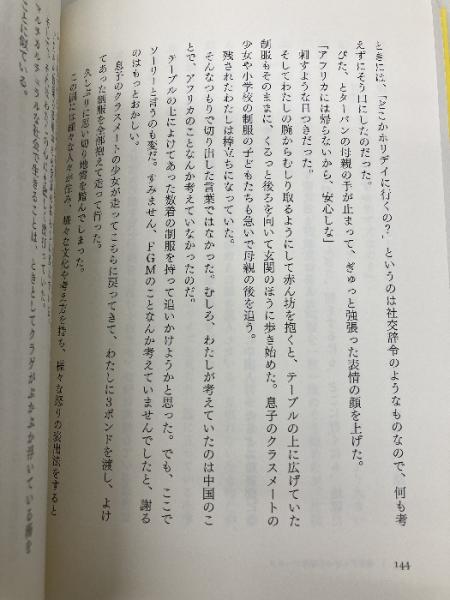 ときには、「どこかホリデイに行くの？」というのは社交辞令のようなものなので、何も考
えずにそう口にしたのだった。
ぴた、とターバンの母親の手が止まって、ぎゅっと強張った表情の顔を上げた。
「アフリカには帰らないから、安心しな」
刺すような目つきだった。
そしてわたしの腕からむしり取るようにして赤ん坊を抱くと、テーブルの上に広げていた
制服もそのままに、くるっと後ろを向いて玄関のほうに歩き始めた。息子のクラスメートの
少女や小学校の制服の子どもたちも急いで母親の後を追う。
残されたわたしは棒立ちになっていた。
そんなつもりで切り出した言葉ではなかった。むしろ、わたしが考えていたのは中国のこ
とで、アフリカのことなんか考えていなかったのだ。
テーブルの上によけてあった数着の制服を持って追いかけようかと思った。でも、ここで
ソーリーと言うのも変だ。すみません、FGMのことなんか考えていませんでしたと、謝る
のはもっとおかしい。
息子のクラスメートの少女が走ってこちらに戻ってきて、わたしに3ポンドを渡し、よけ
てあった制服を全部抱えて走って行った。
久しぶりに思い切り地雷を踏んでしまった。
この国には様々な人々が住み、様々な文化や考え方を持ち、様々な怒りの表出法をすると
マルチカルチュラルな社会で生きることは、ときとしてクラゲがぷかぷか浮いている海を
ことに似ている。
144